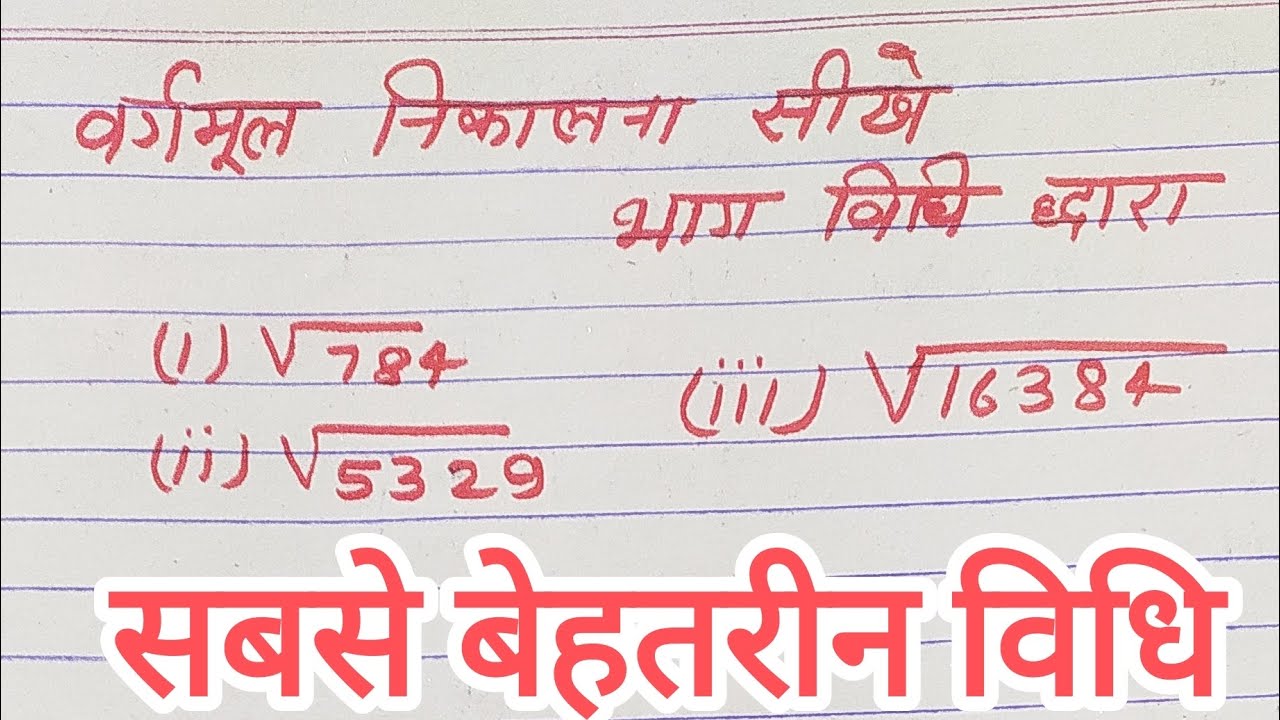 वर्गमूल निकालना सीखे
भाग विधि द्वारा
(i) √784
(ii) √5329
(iii) √16384
सबसे बेहतरीन विधि